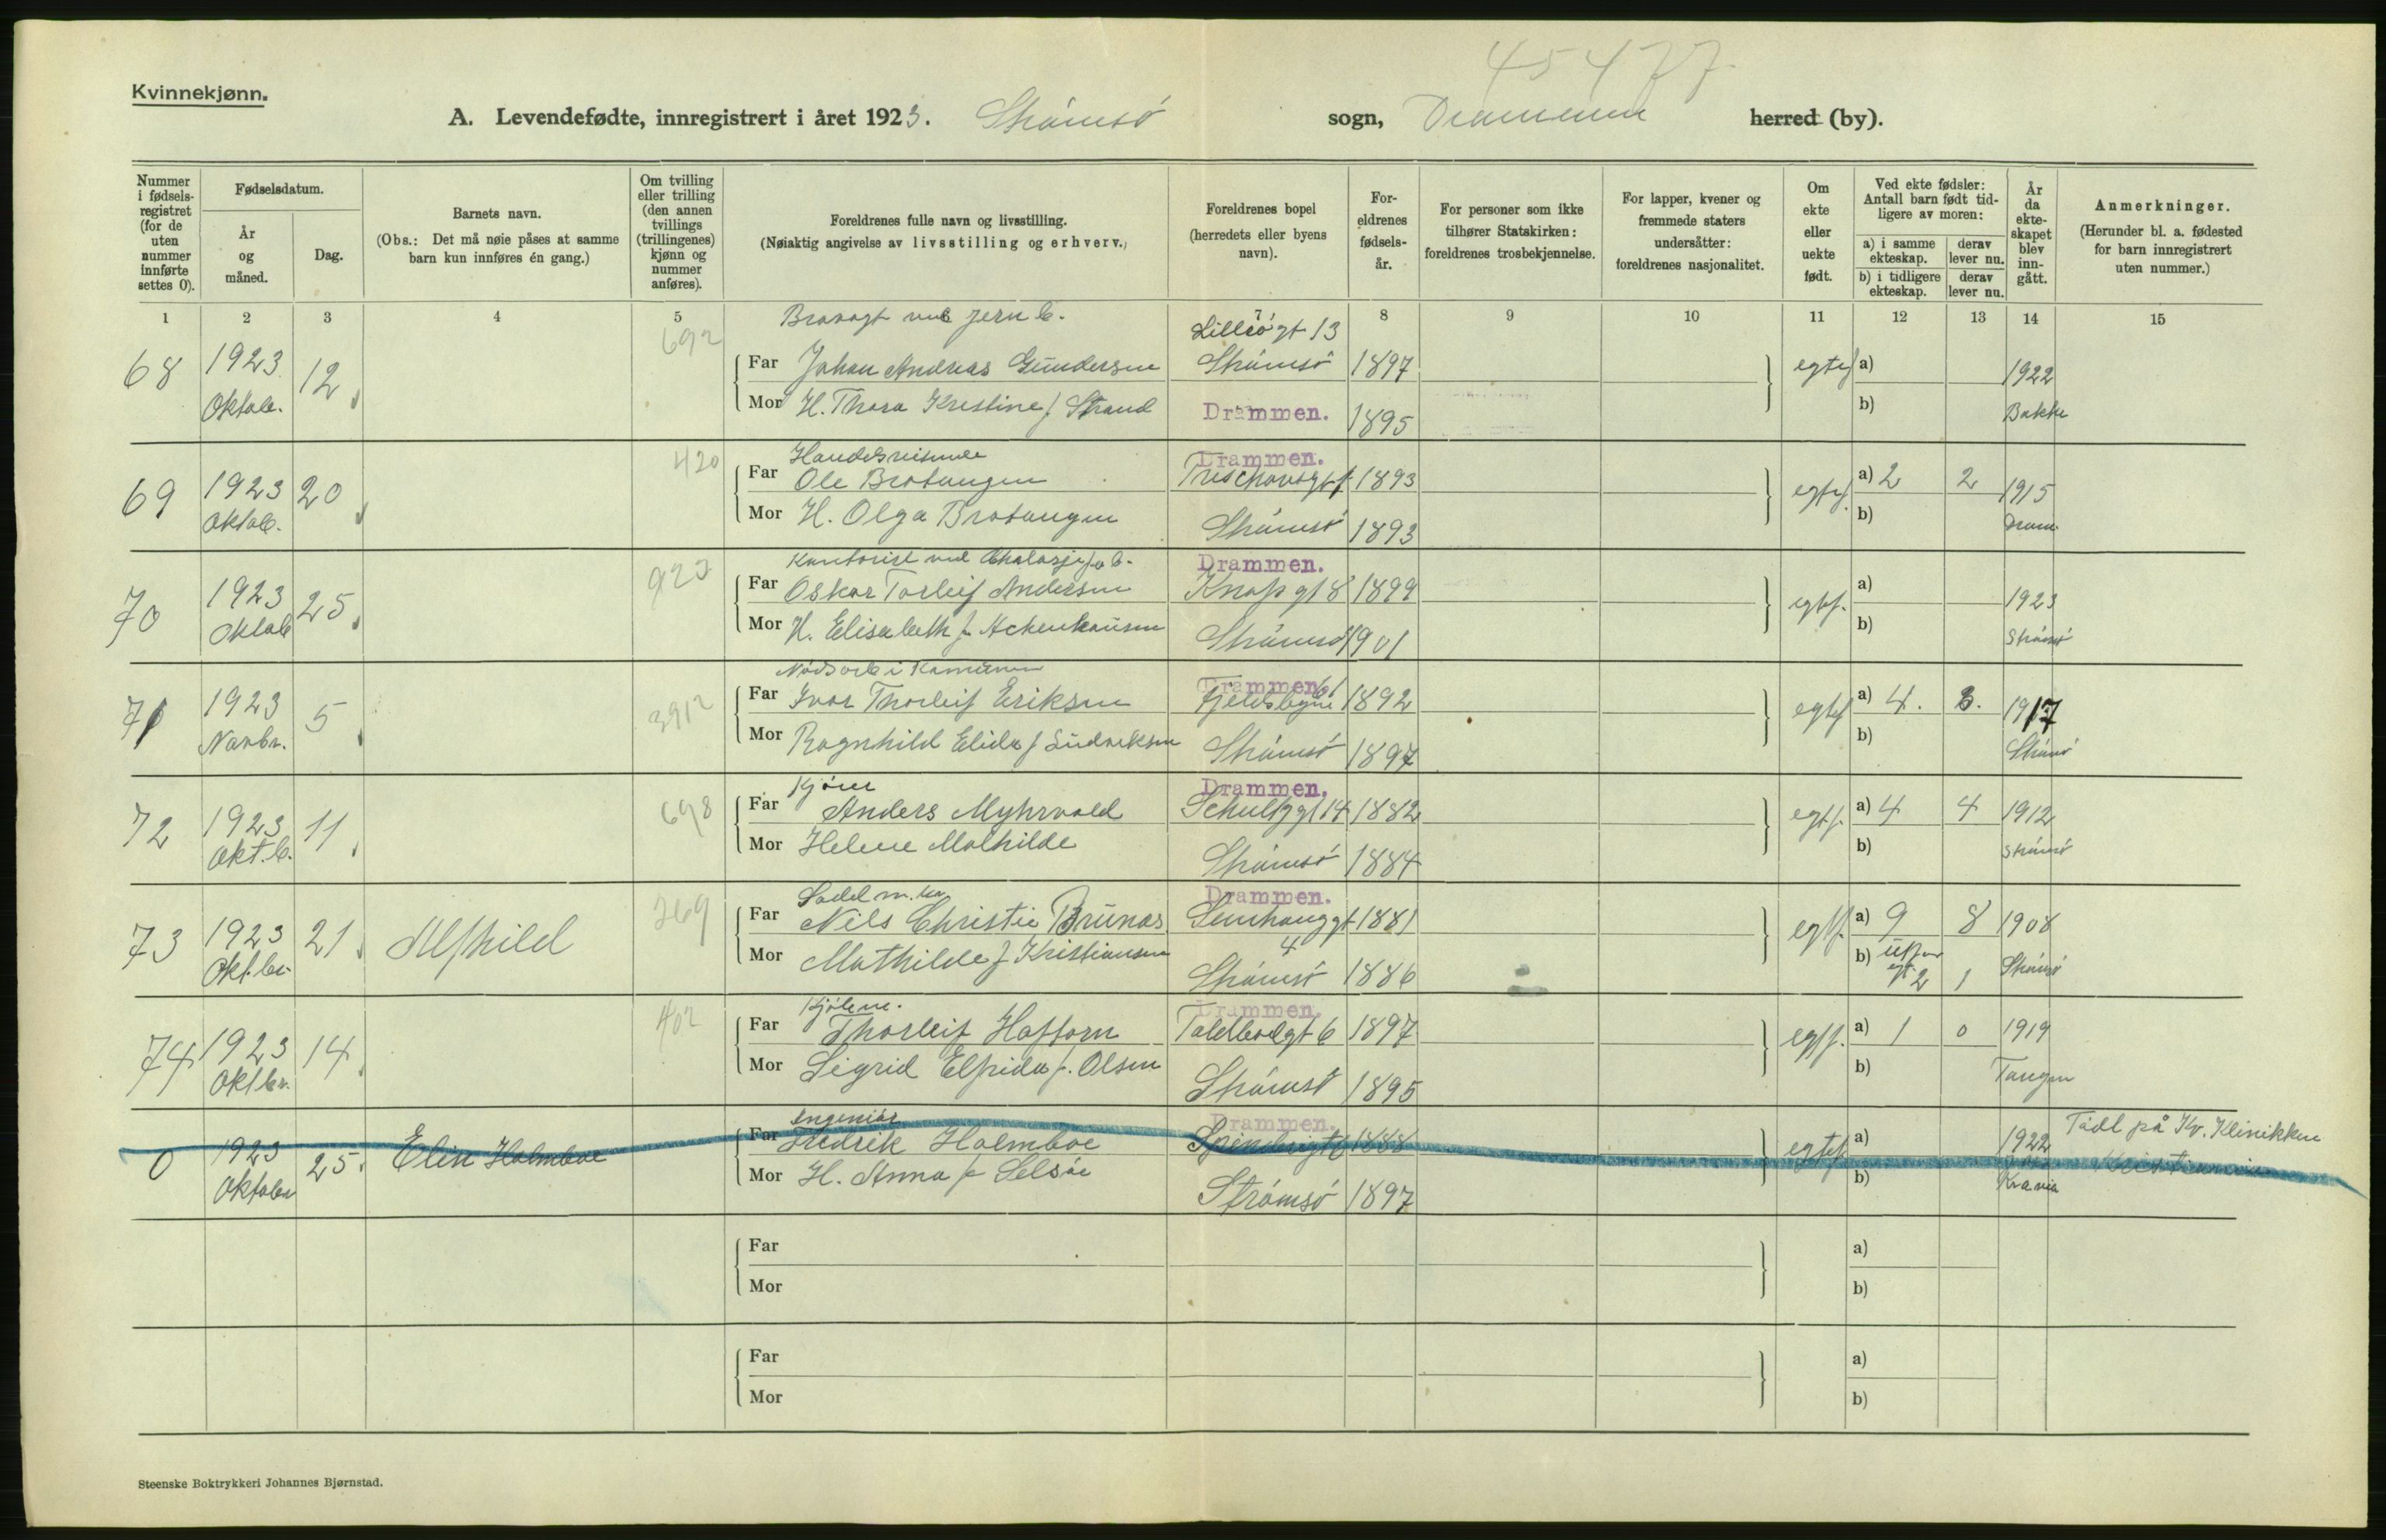 45477
Kvinnekjønn.
A. Levendefødte, innregistrert i året 1923. Strømsö sogn, Drammen herred (by).
Nummer i fødselsregistret (for de uten nummer innførte settes 0).
Fødselsdatum.
År og måned.
Dag.
Barnets navn.
(Obs.: Det må nøie påses at samme barn kun innføres én gang.)
Om tvilling eller trilling (den annen tvillings (trillingenes) kjønn og nummer anføres).
Foreldrenes fulle navn og livsstilling.
(Nøiaktig angivelse av livsstilling og erhverv.)
Foreldrenes bopel (herredets eller byens navn).
Foreldrenes fødselsår.
For personer som ikke tilhører Statskirken: foreldrenes trosbekjennelse.
For lapper, kvener og fremmede staters undersåtter: foreldrenes nasjonalitet.
Om ekte eller uekte født.
Ved ekte fødsler: Antall barn født tidligere av moren:
a) i samme ekteskap. derav lever nu.
b) i tidligere ekteskap. derav lever nu.
År da ekteskapet blev inngått.
Anmerkninger.
(Herunder bl. a. fødested for barn innregistrert uten nummer.)
1 2 3 4 5 7 8 9 10 11 12 13 14 15
692 Lillesögt 13
68 1923 12 Far Johan Andreas Gundersen Strömsö 1897 egtef a) 1922
Oktob. Mor H. Thora Kristine f. Strand Drammen. 1895 b) Bakke
420 Handelsreisende Drammen.
69 1923 20 Far Ole Brotangen Treschowsgt 1893 egtef. a) 2 2 1915
Oktob. Mor H. Olga Brotangen Strömsö 1893 b) Dram.
Kontorist ved Drammen.
70 1923 25 Far Oskar Torleif Andersen Knofs gt 8 1899 egtf. a) 1923
Oktob Mor H. Elisabeth f. Ackenhausen Strömsö 1901 b) Strömsö
3912 Drammen.
71 1923 5 Far Ivar Thorleif Eriksen 1892 egtef a) 4. 3. 1917
Novbr. Mor Ragnhild Elida f. Ludviksen Strömsö 1897 b) Strömsö
698 Kjörer Drammen.
72 1923 11 Far Anders Myhrvold Schultzgt 14 1882 egtf. a) 4 4 1912
Oktb. Mor Helene Mathilde Strömsö 1884 b) Strömsö
269 Sadelm. Drammen.
73 1923 21 Alfhild Far Nils Christie Brunås 1881 egtf. a) 9 8 1908
Oktbr. Mor Mathilde f Kristiansen 4 Strömsö 1886 b) 2 1 Strömsö
402 Drammen.
74 1923 14 Far Thorleif Haftorn Tollerbodgt 6 1897 egtf. a) 1 0 1919
Oktbr. Mor Sigrid Elfrida f. Olsen Strömsö 1895 b) Tangen
Ingeniör Drammen.
0 1923 25. Elin Holmboe Far Fredrik Holmboe 1888 egtef. a) 1922 Födt på Kv. Klinikken
Oktober Mor H. Anna f Selsöe Strömsö 1897 b) Kr.ania Kristiania
Far a)
Mor b)
Far a)
Mor b)
Steenske Boktrykkeri Johannes Bjørnstad.